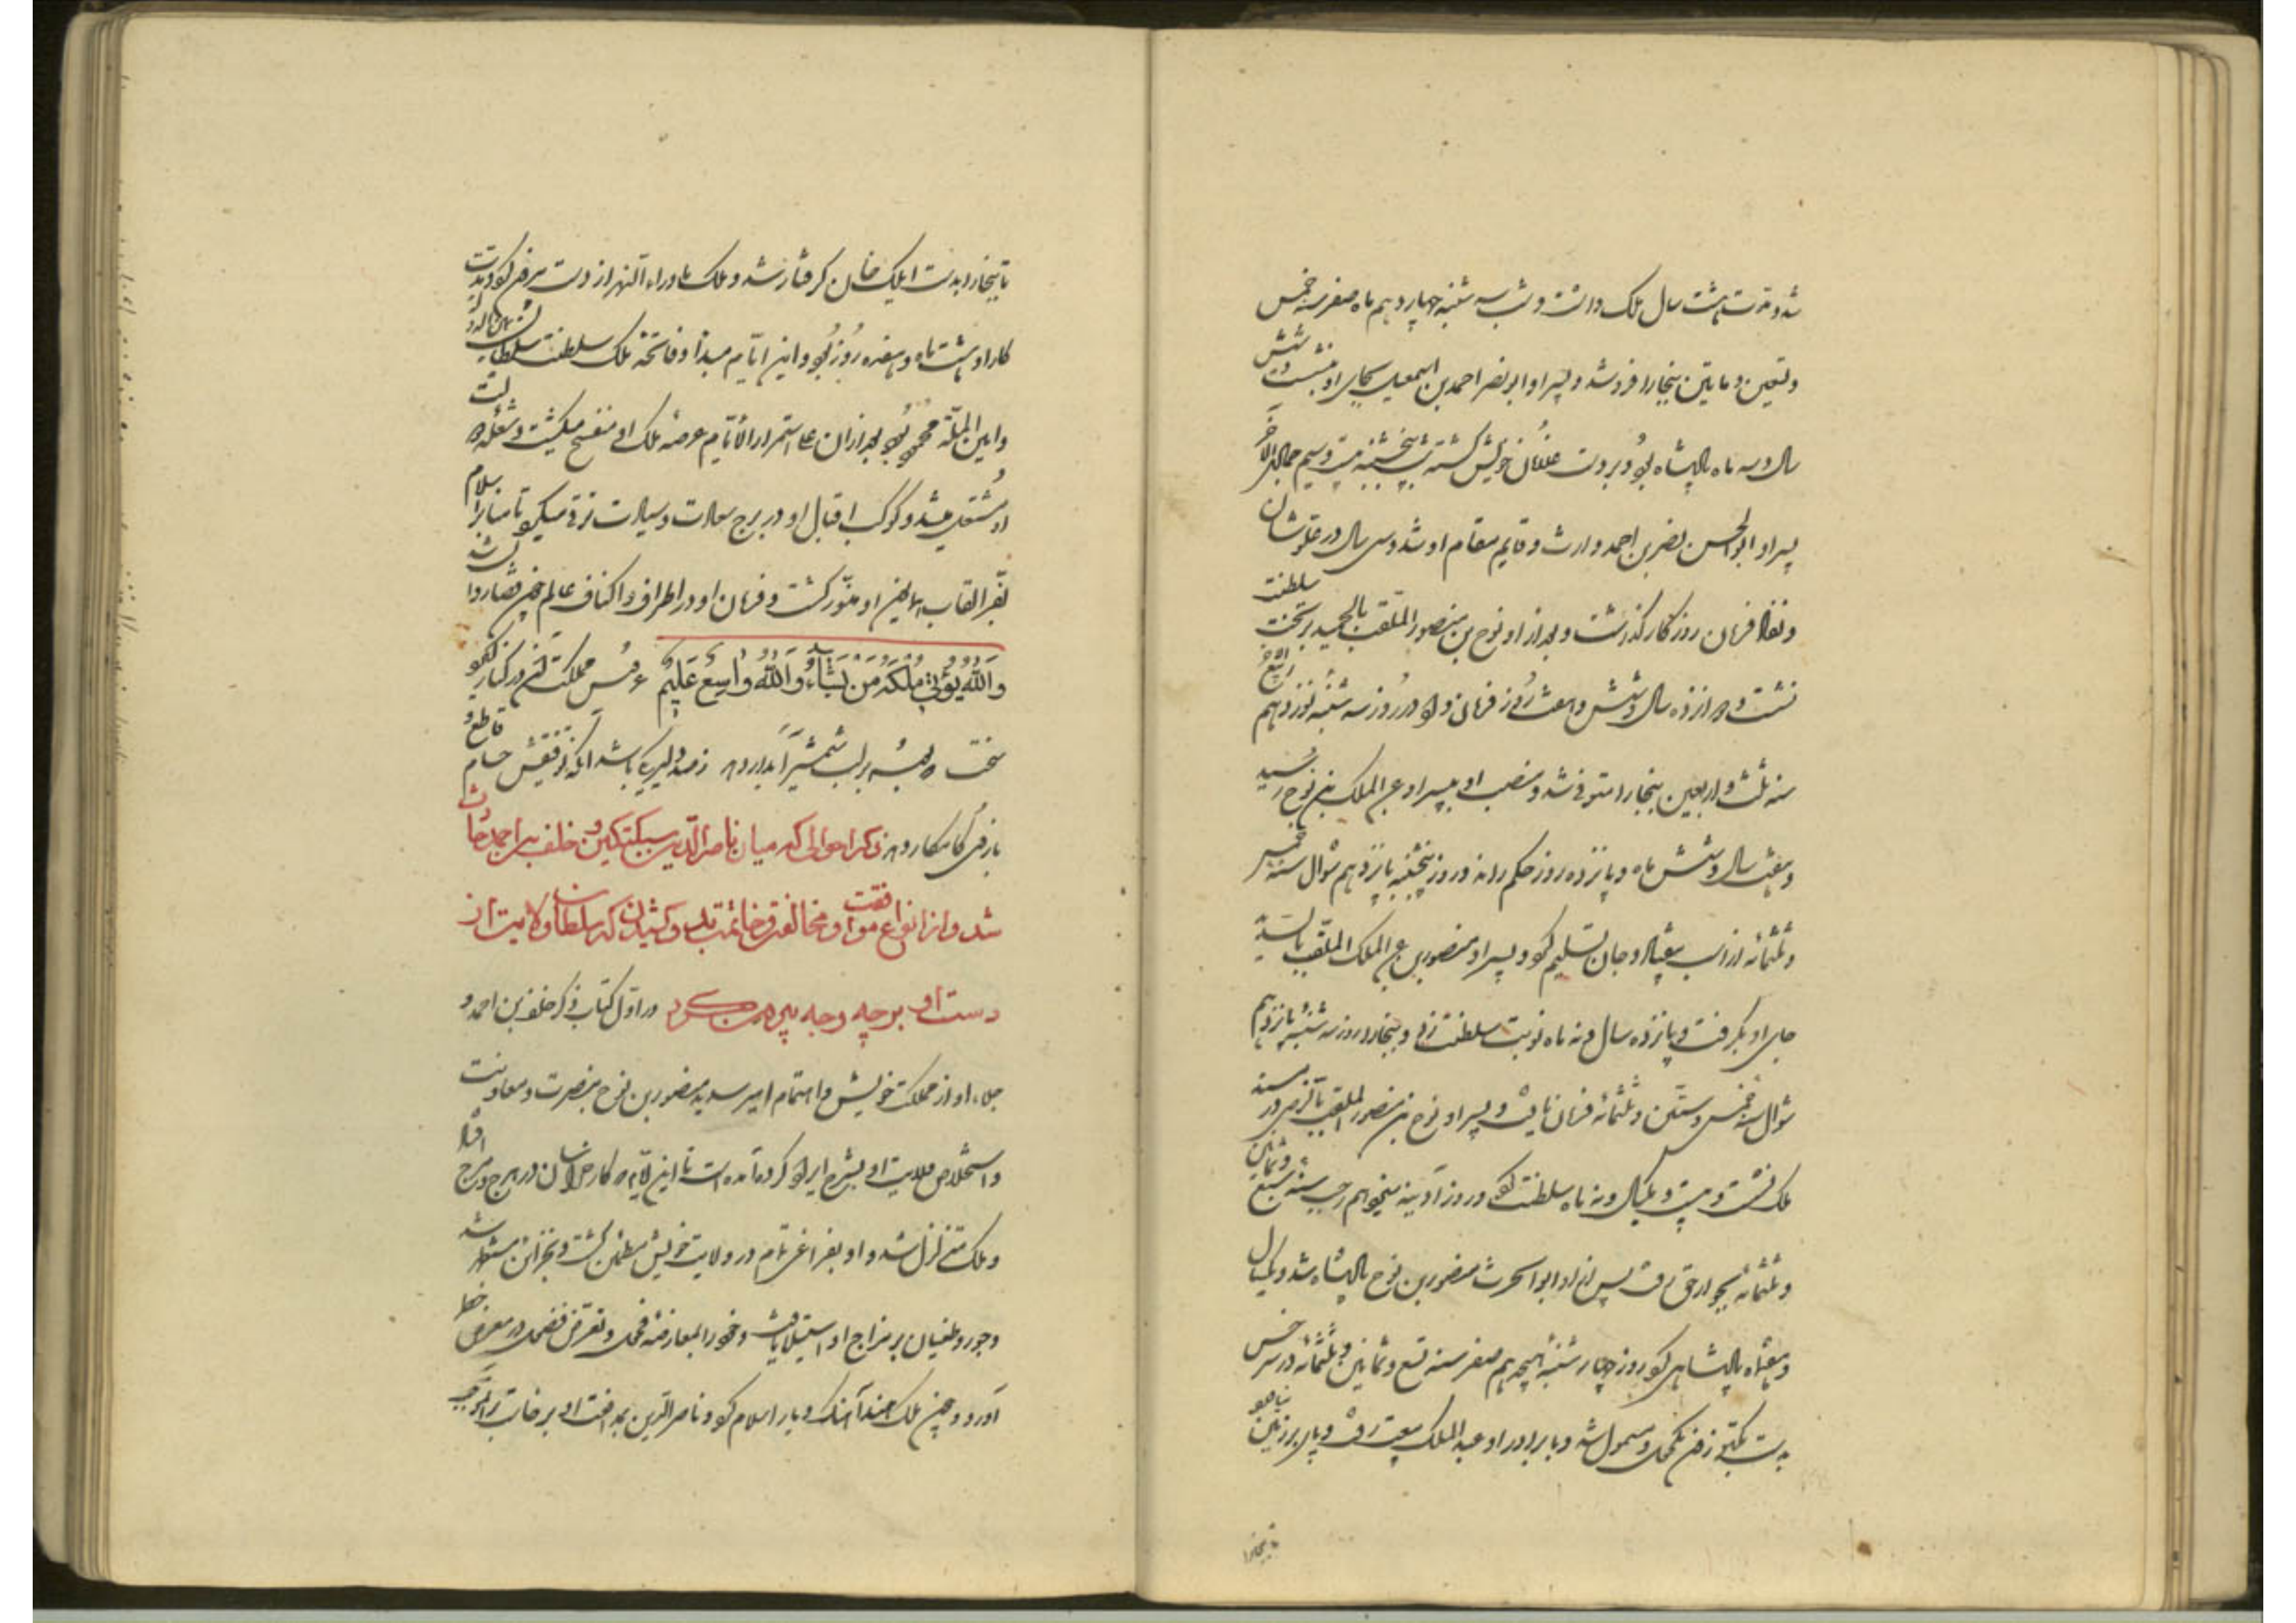 شد و مدت هشت سال ملک داشت و شب سه شنبه چهاردهم ماه صفر سنه خمس
و تسعین و مایتین ببخارا فرو شد و پسر او ابو نصر احمد بن اسمعیل بجای او بنشست و شش
سال و سه ماه پادشاه بود و بر دست غلامان خویش کشته شد شب پنجشنبه بیست و سیم جمادی الآخر
پسر او ابو الحسن نصر بن احمد وارث و قایم مقام او شد و سی سال در علو شان
و نفاذ فرمان روزگار گذاشت و بعد از او نوح بن منصور الملقب بالحمید بر تخت سلطنت
نشست و دوازده سال و شش و هفت روز فرمان داد و در روز سه شنبه نوزدهم ربیع
سنه ثلث و اربعین ببخارا متوفی شد و منصب او به پسر او عبد الملک بن نوح رسید
و هفت سال و شش ماه و پانزده روز حکم راند و روز پنجشنبه یازدهم شوال سنه خمس
و ثلثمائه از اسب بیفتاد و جان تسلیم کرد و پسر او منصور بن عبد الملک الملقب بالسدید
جای او بگرفت و پانزده سال و نه ماه نوبت سلطنت زد و ببخارا روز سه شنبه یازدهم
شوال سنه خمس و ستین و ثلثمائه فرمان یافت و پسر او نوح بن منصور الملقب بالرضی در مسند
ملک نشست و بیست و یکسال و نه ماه سلطنت کرد و روز آدینه سیزدهم رجب سنه سبع و ثمانین
و ثلثمائه بجوار حق رفت پس از او ابو الحرث منصور بن نوح پادشاه شد و یکسال
و هفت ماه پادشاهی کرد روز چهار شنبه هیجدهم صفر سنه تسع و ثمانین و ثلثمائه در سرخس
بدست بکتوزن مکحول و مسمول شد و با برادر او عبد الملک بیعت رفت و پای بر زمین ننهاده
تا ببخارا
تا ببخارا بدست ایلک خان گرفتار شد و ملک ماوراء النهر از دست بیرون کرد و مدت
کار او هشت ماه و هفده روز بود و این ایام مبدأ و فاتحه ملک سلطنت سلطان یمین الدوله
و امین الملة محمود بود بعد از آن علی استمرار الأیام عرصه ملک او منفسح میگشت و شعله دولت
او مشتعل میشد و کوکب اقبال او در برج سعادت و سیادت ترقی میکرد تا منابر اسلام
بفر القاب همایون او منور گشت و فرمان او در اطراف و اکناف عالم چون قضا روان شد
وَاللّهُ یُؤْتِی مُلْکَهُ مَن یَشَاءُ وَاللّهُ وَاسِعٌ عَلِیمٌ عروس مملکت آن در کنار گیرد
سخت که بوسه بر لب شمشیر آبدار دهد ز صد دلیر یکی باشد آنکه توفیقش حسام قاطع و
بازوی کامکار دهد ذکر احوالی که میان ناصر الدین سبکتکین و خلف بن احمد حادث
شد و از انواع موافقت و مخالفت و خاتمت که سلطان ولایت از
دست او برچه وجه بیرون کرد در اول کتاب ذکر خلف بن احمد و
جلاء او از مملکت خویش و اهتمام امیر سدید منصور بن نوح بنصرت و معاونت
و استخلاص ولایت او بشرح ایراد کرده آمده است تا این ایام که کار خراسان در هرج و مرج افتاد
و ملک متزلزل شد و او بفراغی تمام در ولایت خویش مطمئن گشت و بخزاین مستظهر شد
و جور و طغیان بر مزاج او استیلا یافت
آورد و چون ملک هند آهنگ دیار اسلام کرد و ناصر الدین بمدافعت او برخاست